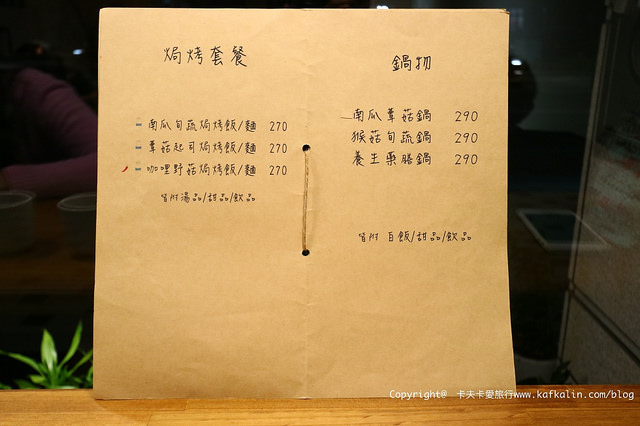 焗烤套餐
南瓜旬蔬焗烤飯/麵 270
蕈菇起司焗烤飯/麵 270
咖哩野菇焗烤飯/麵 270
皆附湯品/甜品/飲品
鍋物
南瓜蕈菇鍋 290
猴菇旬蔬鍋 290
養生藥膳鍋 290
皆附 白飯/甜品/飲品
Copyright@ 卡夫卡愛旅行www.kafkalin.com/blog